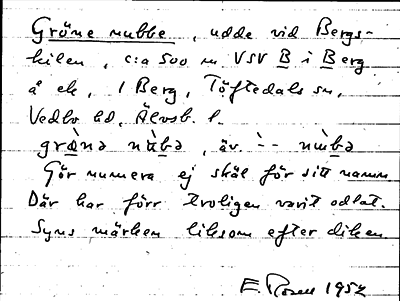 Gröne nubbe, udde vid Bergs-
kilen, c:a 500 m. VSV B i Berg
å ek, 1 Berg, Töftedals sn,
Vedbo hd, Älvsb. l.
grœ̀nə nùbə, äv. ̀-- nùbə
Gör numera ej skäl för sitt namn
Där har förr troligen varit odlat.
Syns märken liksom efter diken
E. Rosell 1952